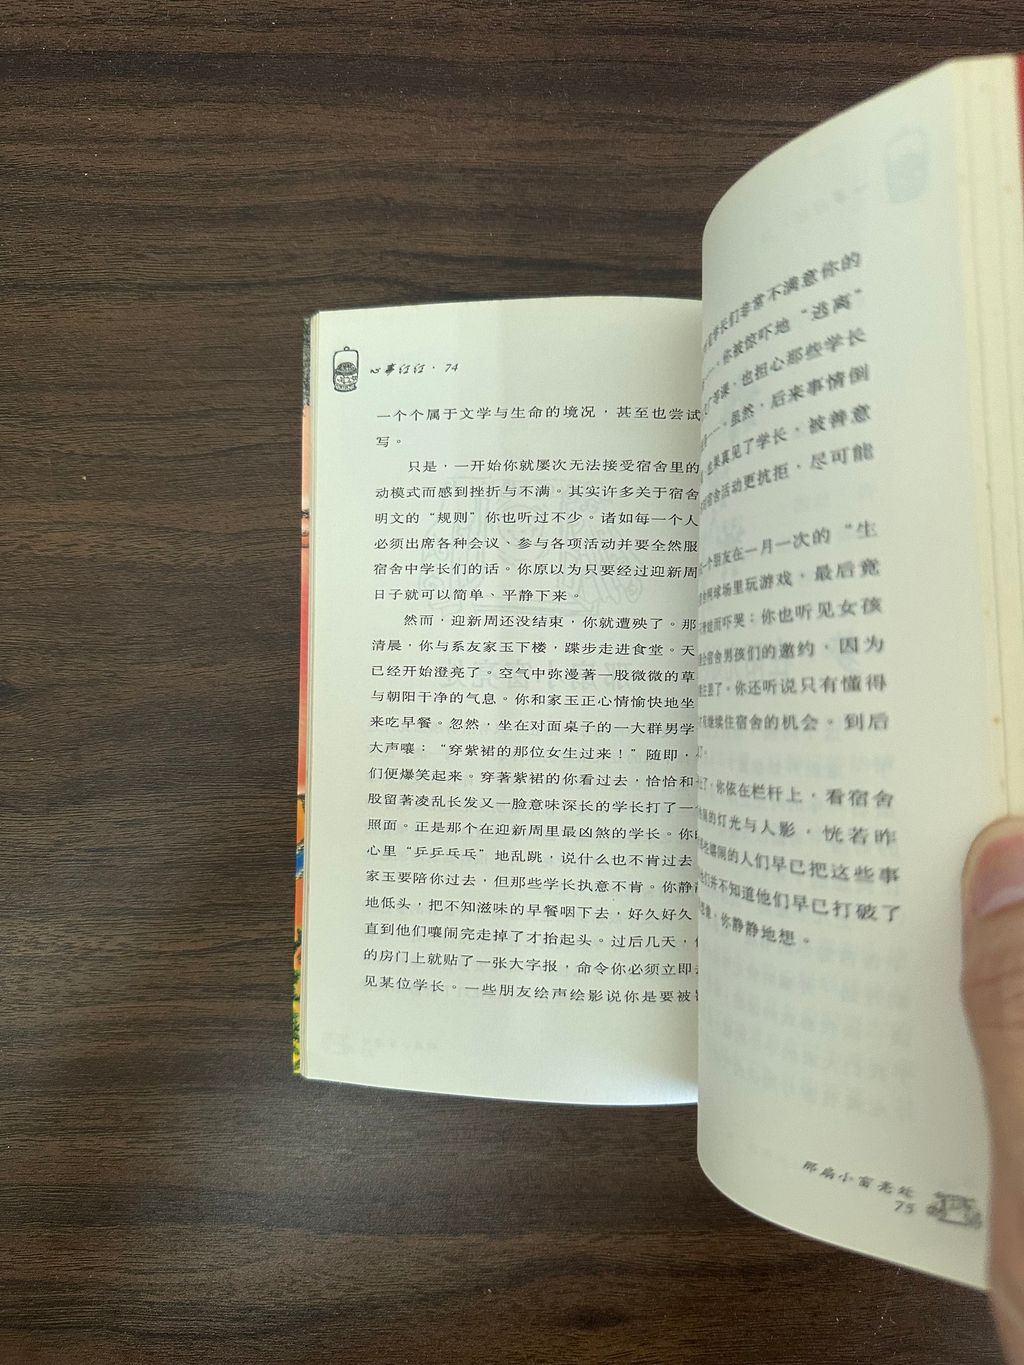 心事行行·74
一个个属于文学与生命的境况，甚至也尝试
写。
只是，一开始你就屡次无法接受宿舍里的
动模式而感到挫折与不满。其实许多关于宿舍
明文的“规则”你也听过不少。诸如每一个人
必须出席各种会议、参与各项活动并要全然服
宿舍中学长们的话。你原以为只要经过迎新周
日子就可以简单、平静下来。
然而，迎新周还没结束，你就遭殃了。那
清晨，你与系友家玉下楼，蹀步走进食堂。天
已经开始澄亮了。空气中弥漫著一股微微的草
与朝阳干净的气息。你和家玉正心情愉快地坐
来吃早餐。忽然，坐在对面桌子的一大群男学
大声嚷：“穿紫裙的那位女生过来！”随即，
们便爆笑起来。穿著紫裙的你看过去，恰恰和一
股留著凌乱长发又一脸意味深长的学长打了一
照面。正是那个在迎新周里最凶煞的学长。你
心里“乒乒乓乓”地乱跳，说什么也不肯过去
家玉要陪你过去，但那些学长执意不肯。你静
地低头，把不知滋味的早餐咽下去，好久好久
直到他们嚷闹完走掉了才抬起头。过后几天，
的房门上就贴了一张大字报，命令你必须立即
见某位学长。一些朋友绘声绘影说你是要被
学长们非常不满意你的
你被惊吓地“逃离”
等课，也担心那些学长
虽然，后来事情倒
果真见了学长，被善意
宿舍活动更抗拒，尽可能
一个朋友在一月一次的“生
球场里玩游戏，最后竟
而吓哭；你也听见女孩
宿舍男孩们的邀约，因为
了。你还听说只有懂得
继续住宿舍的机会。到后
了。
了，你依在栏杆上，看宿舍
的灯光与人影，恍若昨
闹的人们早已把这些事
们并不知道他们早已打破了
，你静静地想。
那扇小窗亮处
75